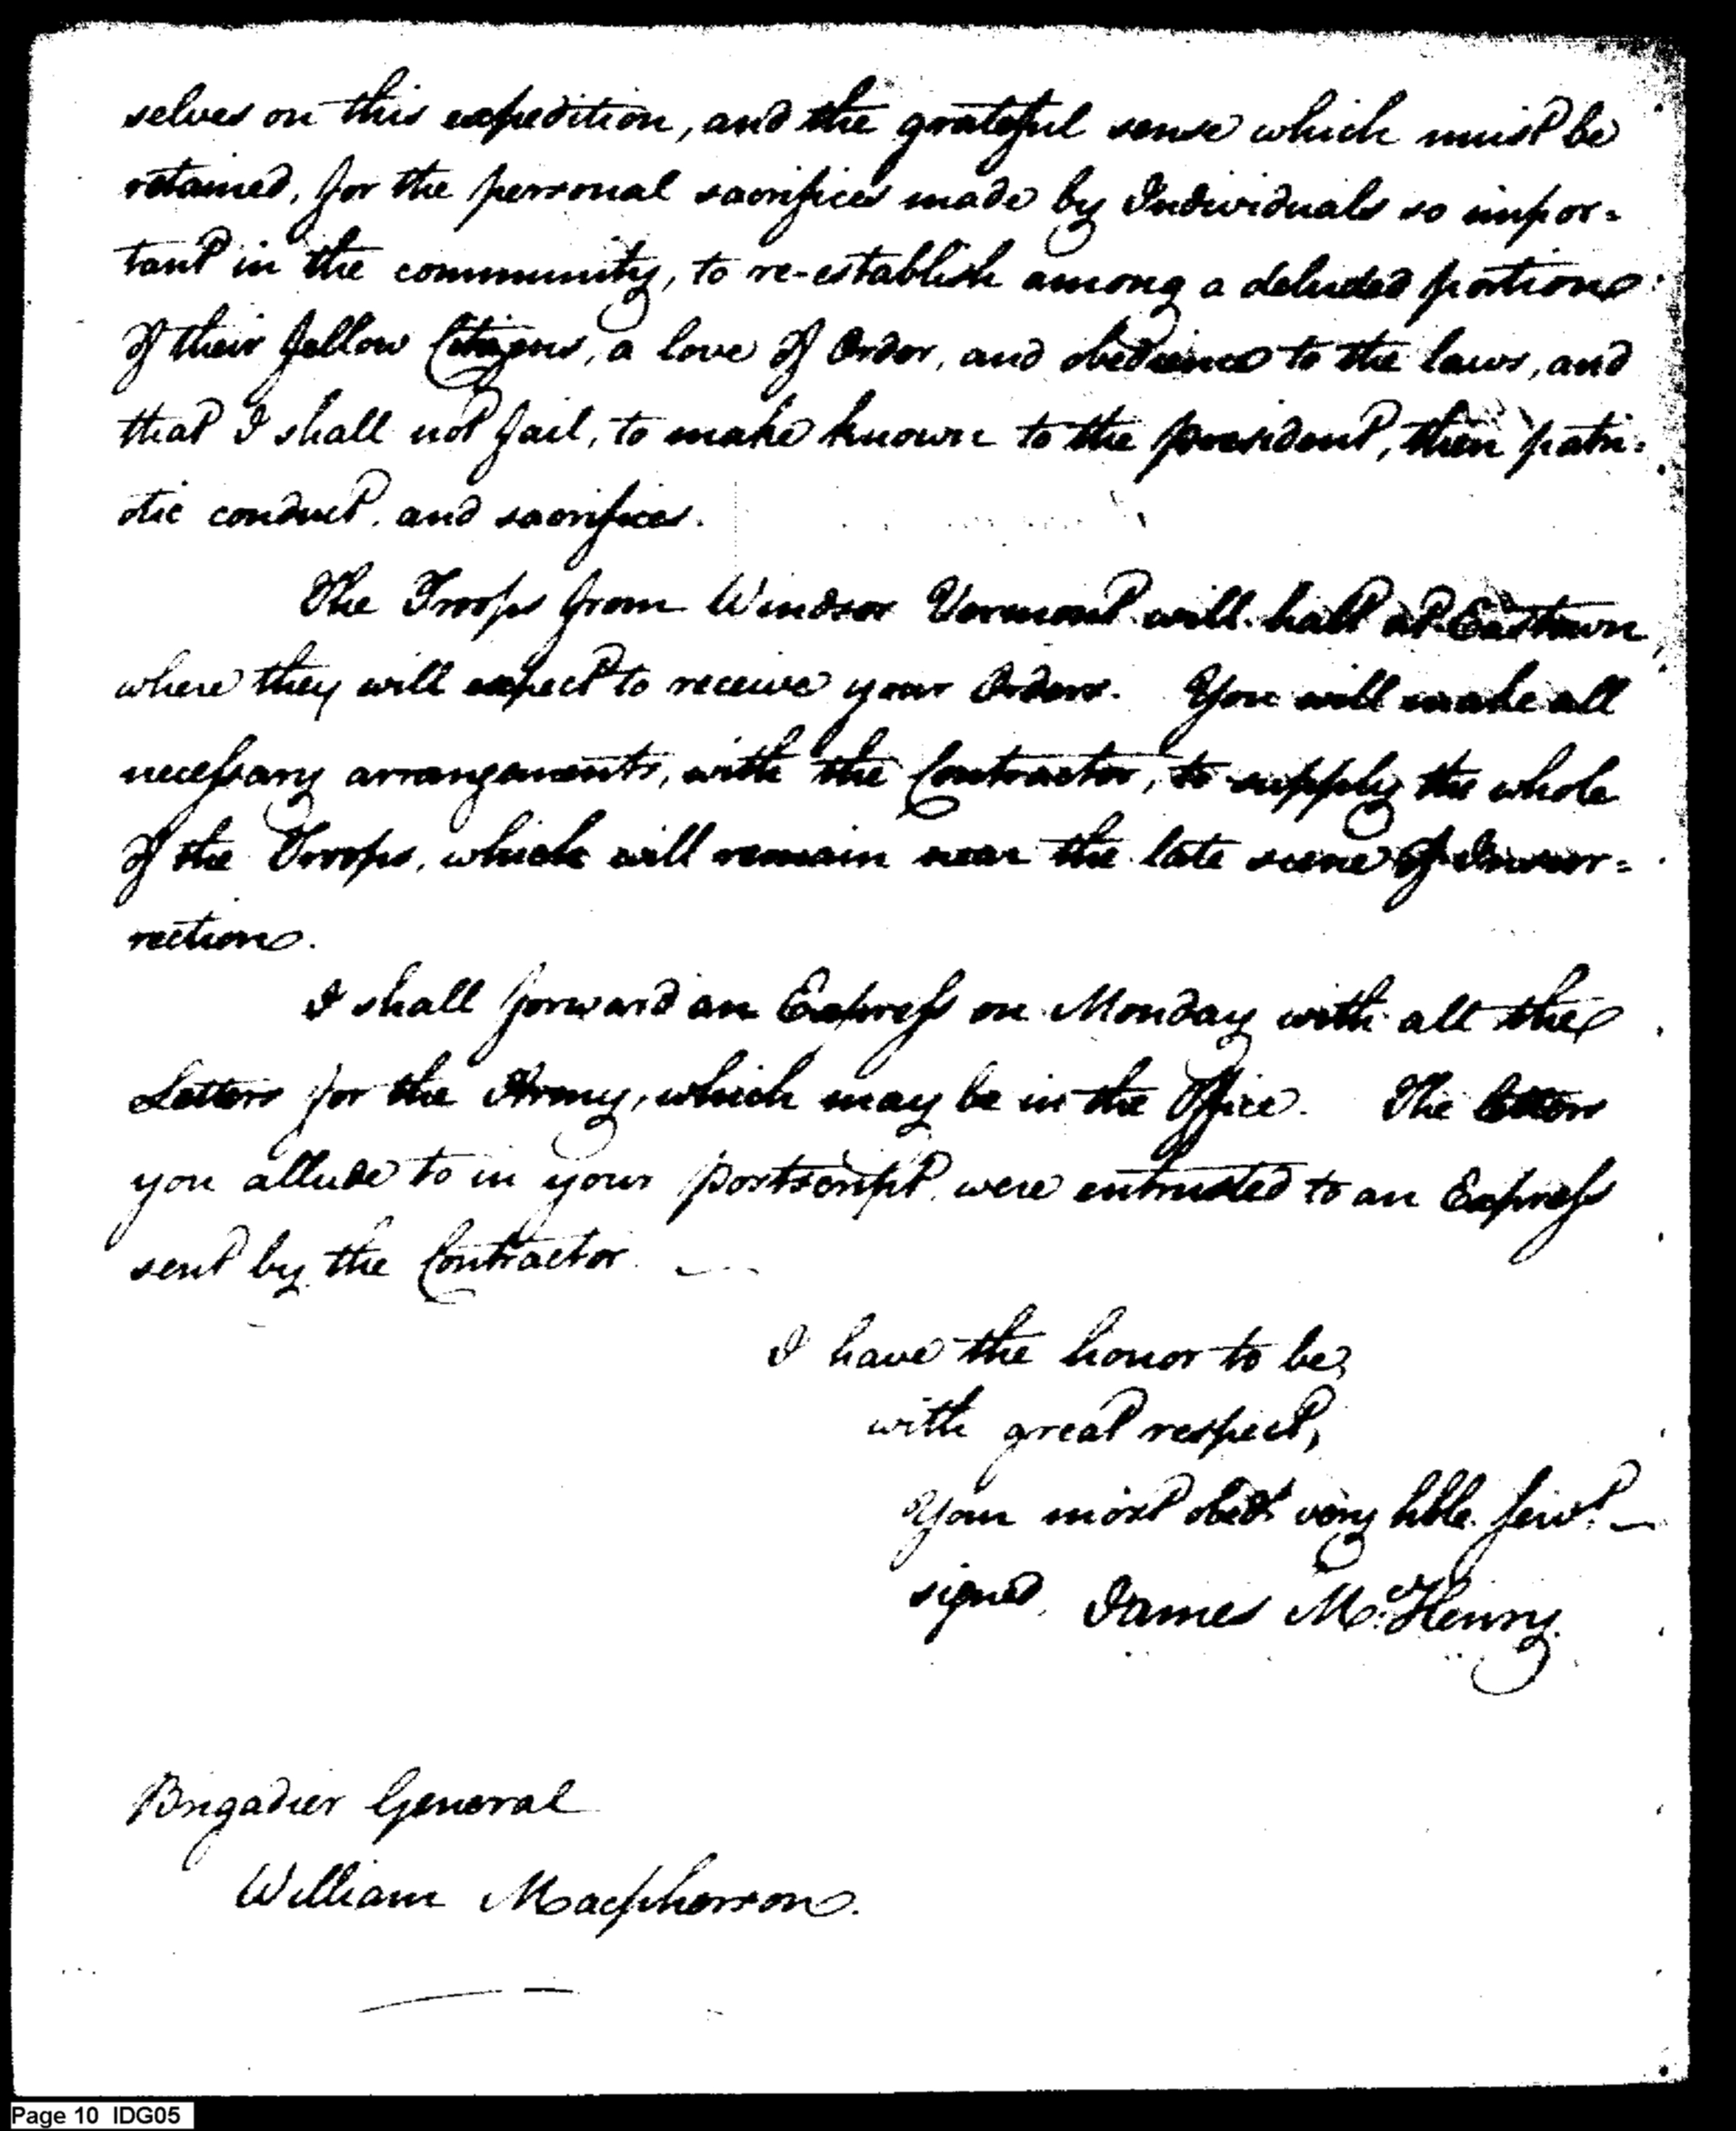 selves on this expedition, and the grateful sense which must be
retained, for the personal sacrifices made by Individuals so impor=
tant in the community, to re-establish among a deluded portion
of their fellow Citizens, a love of Order, and obedience to the laws, and
that I shall not fail, to make known to the president, their patri=
otic conduct, and sacrifices.
The Troops from Windsor Vermont will halt at Eastown
where they will expect to receive your Orders. You will make all
necessary arrangements, with the Contractor, to supply the whole
of the Troops, which will remain near the late scene of Insur=
rection.
I shall forward an Express on Monday with all the
Letters for the Army, which may be in the Office. The letters
you allude to in your postscript, were entrusted to an Express
sent by the Contractor.
I have the honor to be,
with great respect,
Your most obedt very hble. servt.
signed, James McHenry.
Brigadier General
William Macpherson.
Page 10 IDG05